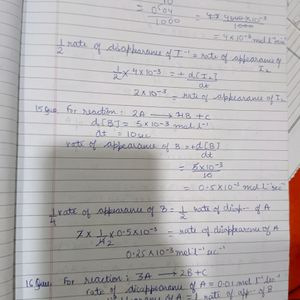 = 0.04
1000
= 4 × 10⁻³ mol l⁻¹ sec⁻¹
1/2 rate of disappearance of I⁻¹ = rate of appearance of I₂
1/2 × 4×10⁻³ = + d[I₂]/dt
2×10⁻³ = rate of appearance of I₂
15 Ques For reaction : 2A → 4B + C
d[B] = 5×10⁻³ mol l⁻¹
dt = 10 sec
rate of appearance of B = +d[B]/dt
= 5×10⁻³/10
= 0.5×10⁻³ mol l⁻¹ sec⁻¹
1/4 rate of appearance of B = 1/2 rate of disp- of A
× 0.5×10⁻³ = rate of disappearance of A
0.25×10⁻³ mol l⁻¹ sec⁻¹
16 Ques For reaction : 3A → 2B+C
rate of disappearance of A = 0.01 mol l⁻¹ sec⁻¹
rate of app- of B